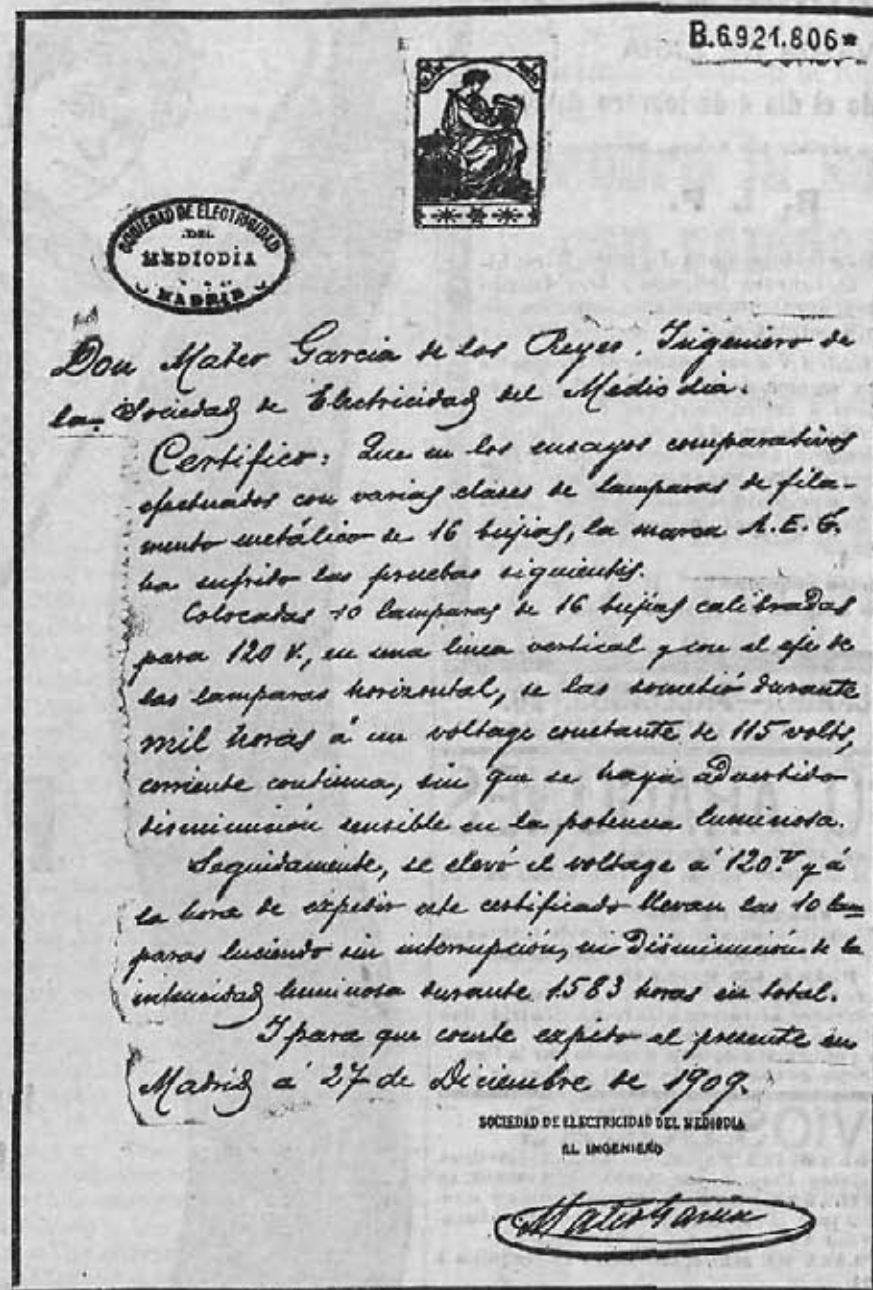 B.6.921.806*
SOCIEDAD DE ELECTRICIDAD
DEL
MEDIODIA
MADRID
Don Mateo Garcia de los Reyes, Ingeniero de
la Sociedad de Electricidad del Mediodia.
Certifico: Que en los ensayos comparativos
efectuados con varias clases de lamparas de fila-
mento metálico de 16 bujias, la marca A.E.G.
ha sufrido las pruebas siguientes.
Colocadas 10 lamparas de 16 bujias calibradas
para 120 V., en una linea vertical y con el eje de
las lamparas horizontal, se las sometió durante
mil horas á un voltage constante de 115 volts,
corriente continua, sin que se haya advertido
disminución sensible en la potencia luminosa.
Seguidamente, se elevó el voltage á 120 V y á
la hora de expedir este certificado llevan las 10 lam
paras luciendo sin interrupcion, ni disminución de la
intensidad luminosa durante 1.583 horas en total.
I para que conste expido el presente en
Madrid á 27 de Diciembre de 1909.
SOCIEDAD DE ELECTRICIDAD DEL MEDIODIA
EL INGENIERO
Mateo Garcia